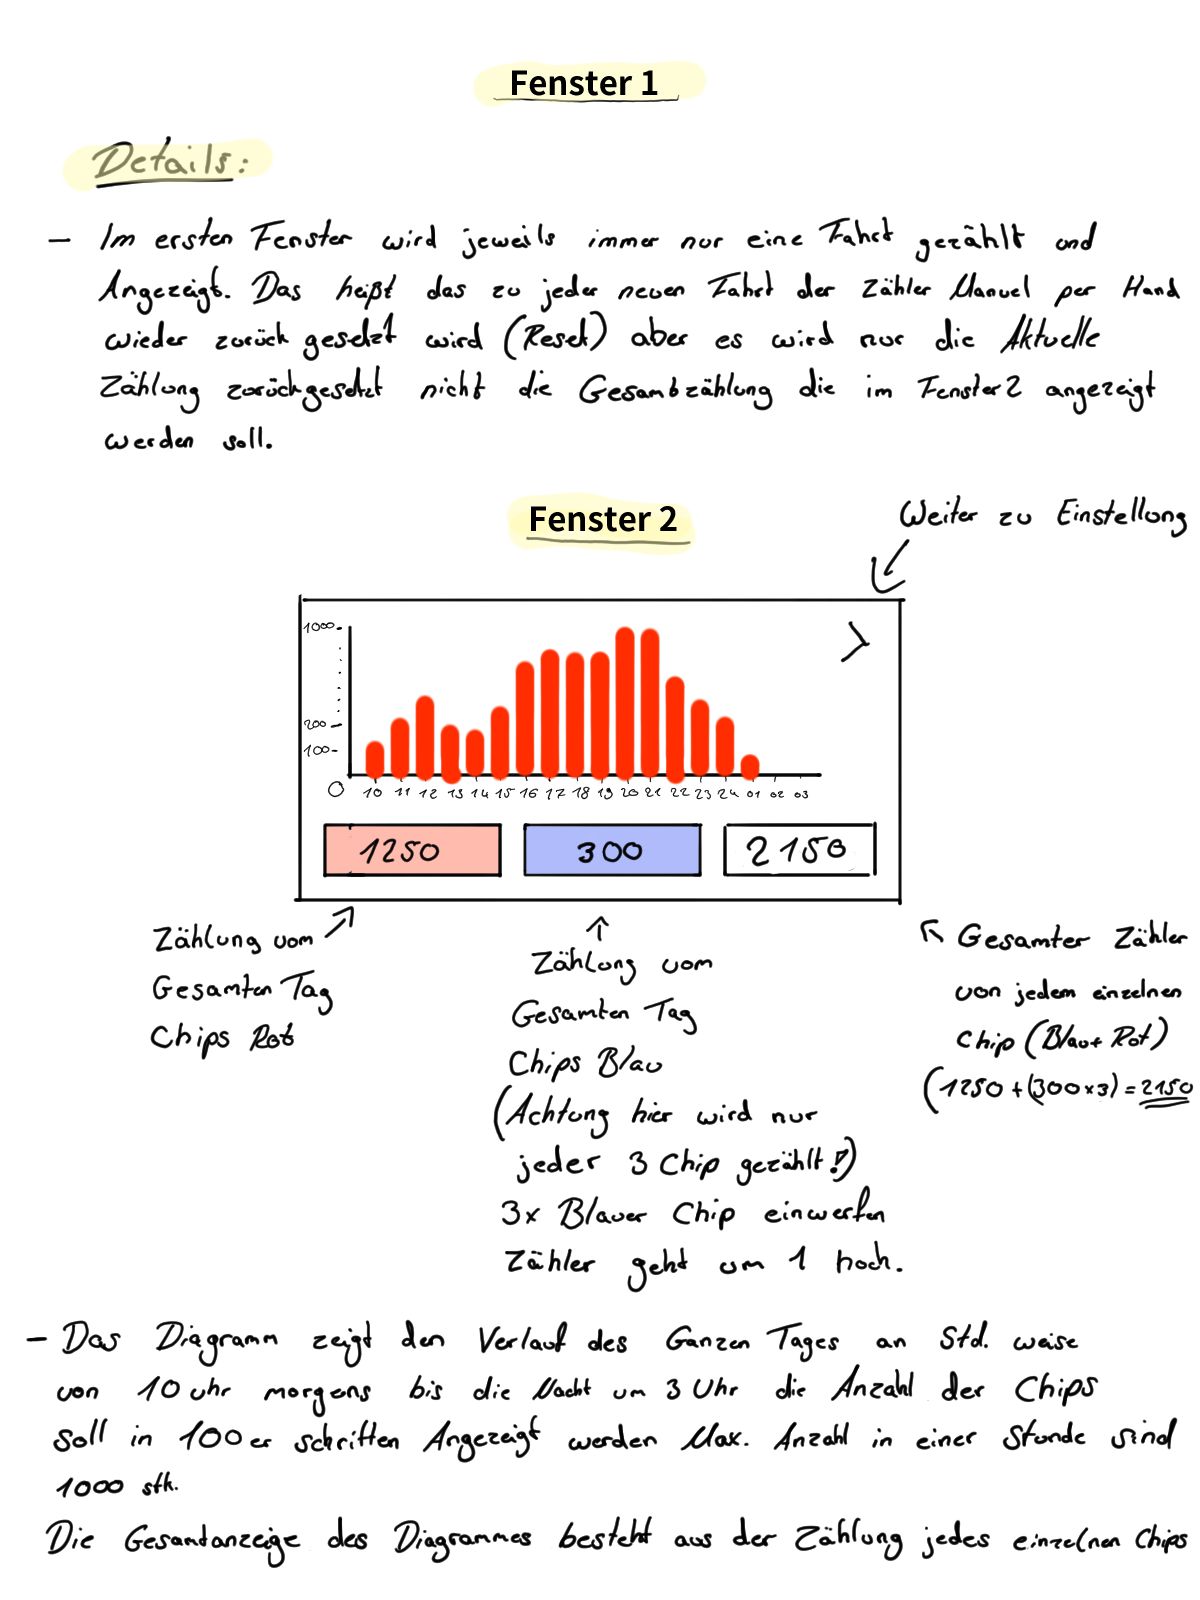 Fenster 1
Details:
– Im ersten Fenster wird jeweils immer nur eine Fahrt gezählt und
Angezeigt. Das heißt das zu jeder neuen Fahrt der Zähler Manuel per Hand
wieder zurück gesetzt wird (Reset) aber es wird nur die Aktuelle
Zählung zurückgesetzt nicht die Gesamtzählung die im Fenster 2 angezeigt
werden soll.
Fenster 2
Weiter zu Einstellung
>
1000
200
100
0
10 11 12 13 14 15 16 17 18 19 20 21 22 23 24 01 02 03
1250 300 2150
Zählung vom
Gesamten Tag
Chips Rot
Zählung vom
Gesamten Tag
Chips Blau
(Achtung hier wird nur
jeder 3 Chip gezählt!)
3x Blauer Chip einwerfen
Zähler geht um 1 hoch.
Gesamter Zähler
von jedem einzelnen
Chip (Blau + Rot)
(1250 + (300 x 3) = 2150
– Das Diagramm zeigt den Verlauf des Ganzen Tages an Std. weise
von 10 uhr morgens bis die Nacht um 3 Uhr die Anzahl der Chips
soll in 100er schritten Angezeigt werden Max. Anzahl in einer Stunde sind
1000 stk.
Die Gesamtanzeige des Diagrammes besteht aus der Zählung jedes einzelnen Chips